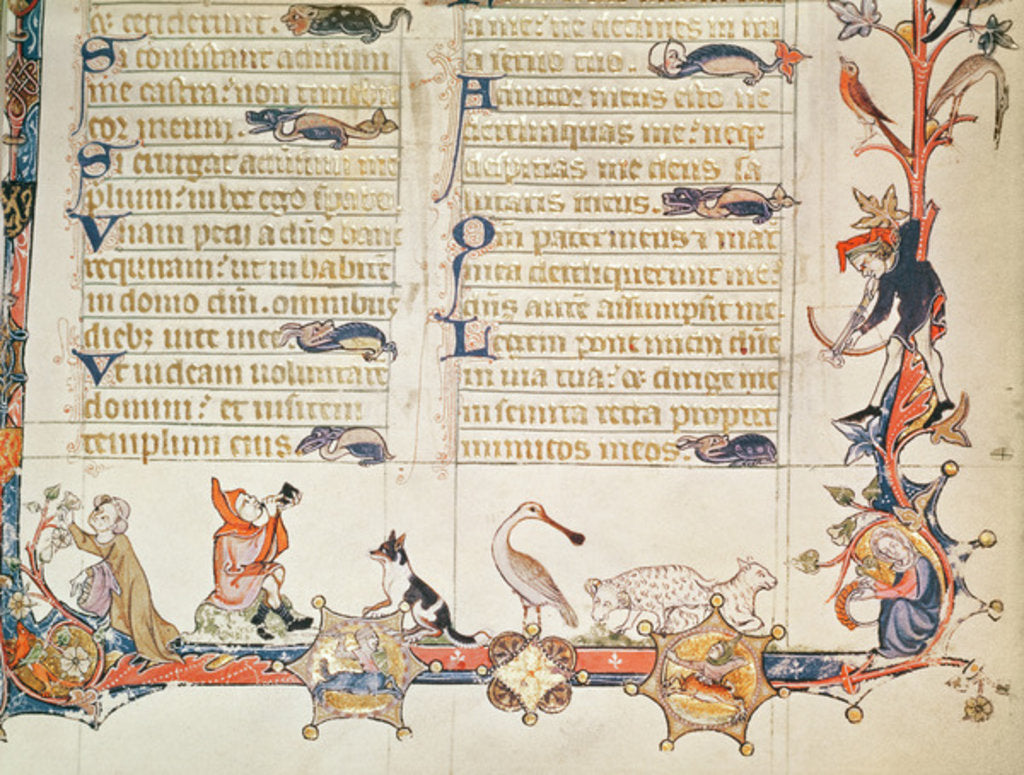 ceciderunt.
Si consistant adūsum
me castra: non timebit
cor meum.
Si exurgat adūsum me
plium: in hoc ego spabo
Vnam petij a dño hanc
requiram: ut inhabitē
in domo dñi. omnibus
diebꝫ uite mee
Vt uideam uoluntatē
domini: et uisitem
templum eius
me: ne declines in ira
a seruo tuo.
Adiutor meus esto ne
derelinquas me: neqꝫ
despicias me deus sa
lutaris meus.
Qm̄ pater meus ⁊ mat̄
mea dereliquerunt me:
dñs autē assumpsit me.
Legem pone michi dñe
in uia tua: ⁊ dirige me
in semita recta propter
inimicos meos.